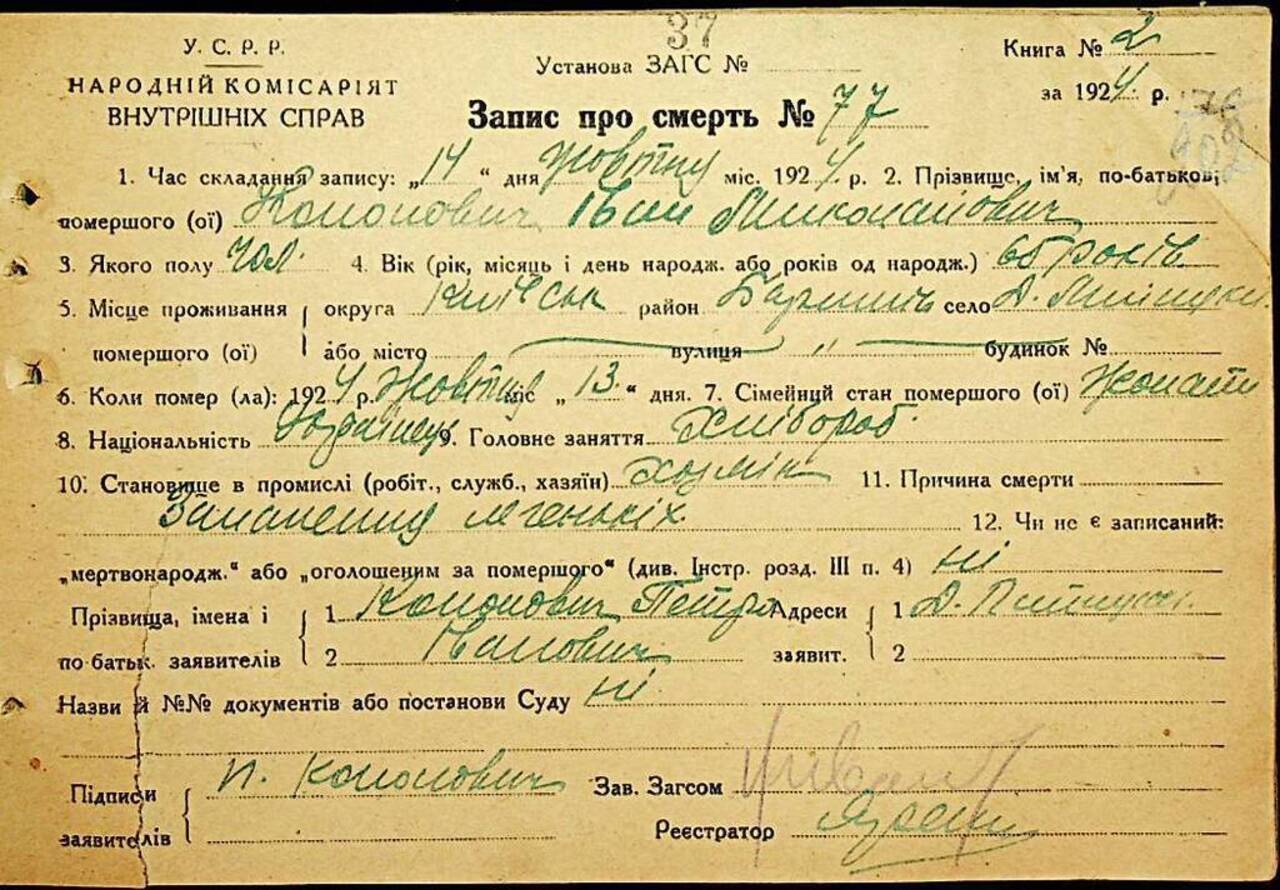 37
У. С. Р. Р.
НАРОДНІЙ КОМІСАРІЯТ
ВНУТРІШНІХ СПРАВ
Установа ЗАГС №
Книга № 2
за 1924 р.
Запис про смерть № 77
1. Час складання запису: „14“ дня жовтня міс. 1924 р. 2. Прізвище, ім'я, по-батькові
помершого (ої) Кононович Іван Миколайович
3. Якого полу чол. 4. Вік (рік, місяць і день народж. або років од народж.) 65 років
5. Місце проживання округа Київськ район село
помершого (ої) або місто вулиця „ будинок №
6. Коли помер (ла): 1924 р. жовтня міс „13.“ дня. 7. Сімейний стан помершого (ої) жонати
8. Національність Українець 9. Головне заняття Хлібороб.
10. Становище в промислі (робіт., служб., хазяїн) 11. Причина смерти
Запалення легеньких. 12. Чи не є записаний:
„мертвонародж.“ або „оголошеним за помершого“ (див. Інстр. розд. III п. 4) ні
Прізвища, імена і 1 Кононович Петро Адреси 1
по батьк. заявителів 2 Іванович заявит. 2
Назви й №№ документів або постанови Суду ні
Підписи П. Кононович Зав. Загсом
заявителів Реєстратор